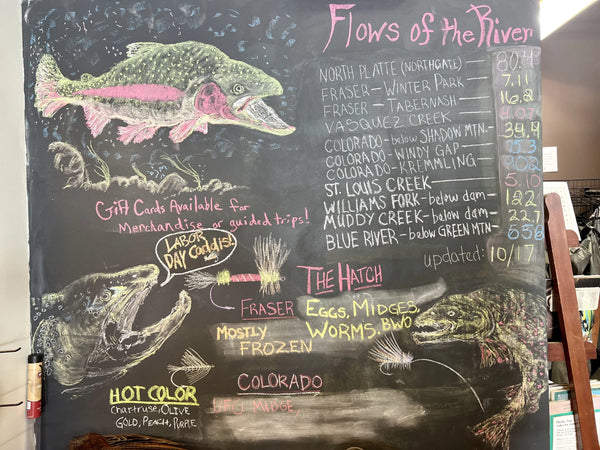 Flows of the River
NORTH PLATTE (NORTHGATE) 80.4
FRASER - WINTER PARK 7.11
FRASER - TABERNASH 16.2
VASQUEZ CREEK
COLORADO - below SHADOW MTN - 34.4
COLORADO - WINDY GAP
COLORADO - KREMMLING
ST. LOUIS CREEK 5.10
WILLIAMS FORK - below dam - 122
MUDDY CREEK - below dam - 22.7
BLUE RIVER - below GREEN MTN -
updated: 10/17
Gift Cards Available for
Merchandise or guided trips!
LABOR
DAY Caddis!
THE HATCH
FRASER
EGGS, MIDGES,
WORMS, BWO
MOSTLY
FROZEN
COLORADO
MIDGE,
HOT COLOR
Chartruse, OLIVE
GOLD, PEACH, PURPLE